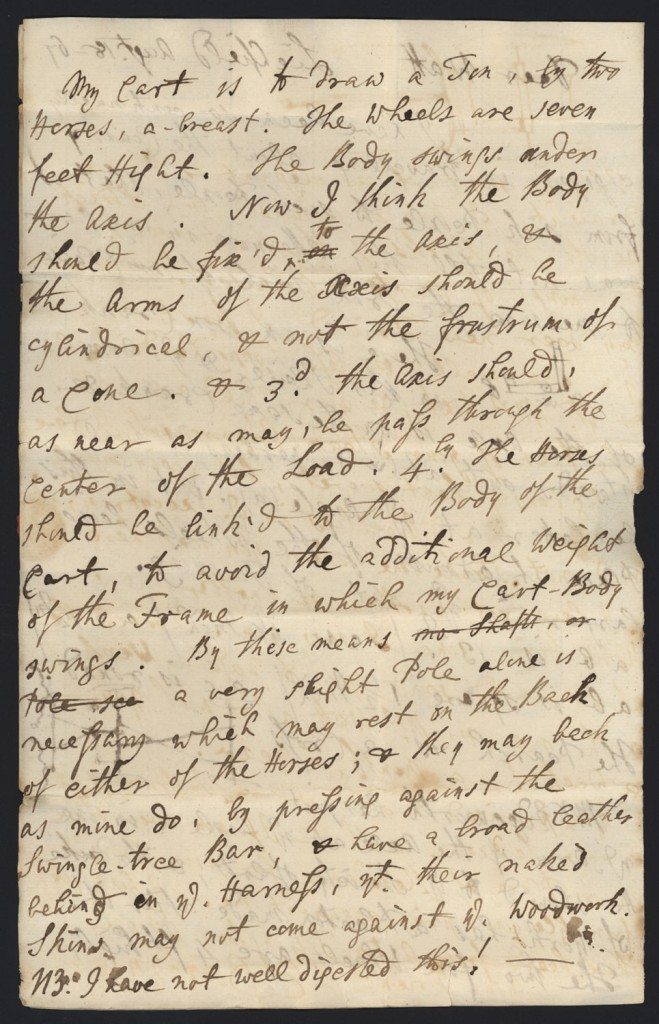 My Cart is to draw a Ton, by two
Horses, a-breast. The wheels are seven
feet Hight. The Body swings under
the axis. Now I think the Body
should be fix'd to the axis, &
the arms of the Axis should be
cylindrical, & not the frustrum of
a Cone. & 3.d the axis should,
as near as may, be pass through the
Center of the Load. 4.ly The Horses
should be link'd to the Body of the
Cart, to avoid the additional Weight
of the Frame in which my Cart-Body
swings. By these means no Shafts, or
Pole a very slight Pole alone is
necessary which may rest on the Back
of either of the Horses; & they may back
as mine do, by pressing against the
Swingle-tree Bar, & have a broad leather
behind in ye. Harness, yt. their naked
Skins may not come against ye. Woodwork.
NB. I have not well digested this!